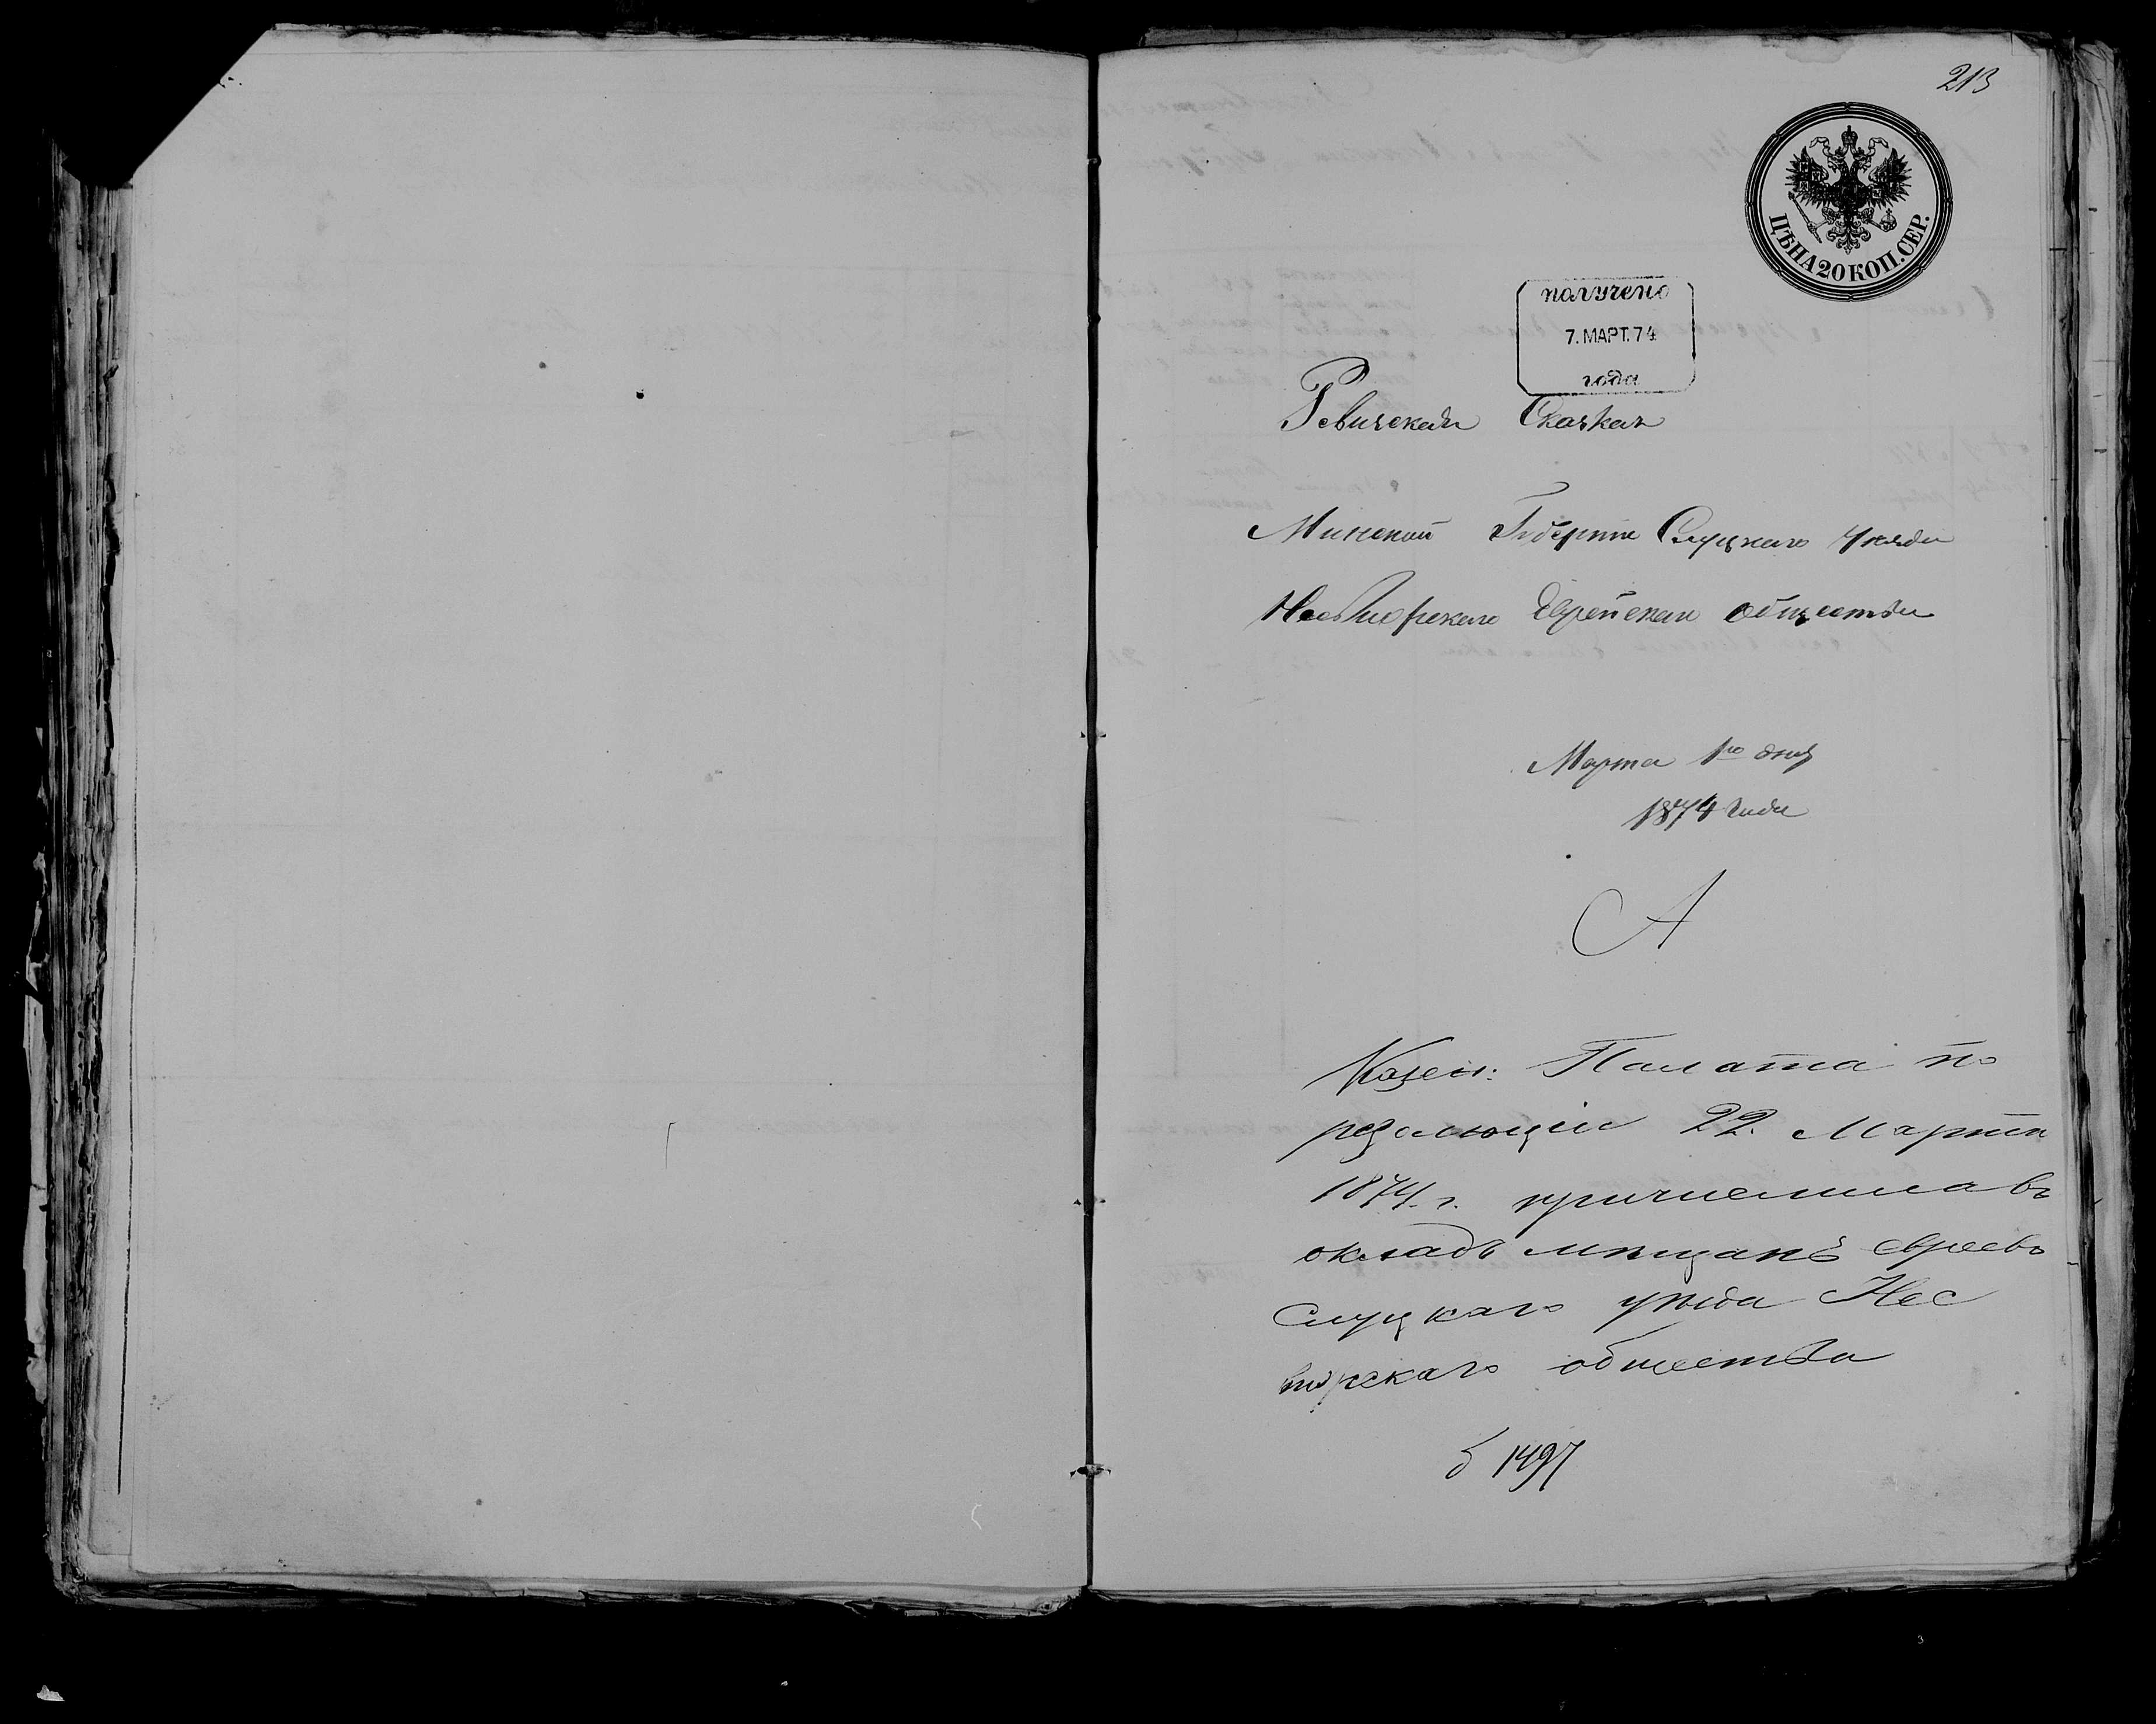 213
ЦѢНА 20 КОП. СЕР.
получено
7. МАРТ. 74
года
Ревизская Сказка
Минской Губерніи Слуцкаго Уѣзда
Несвижскаго Еврейскаго общества
Марта 1го дня
1874 года
А
Казен: Палата по
резолюціи 22 Марта
1874 г. причислила въ
окладъ мѣщанъ евреевъ
Слуцкаго уѣзда Нес
вижскаго общества
1497